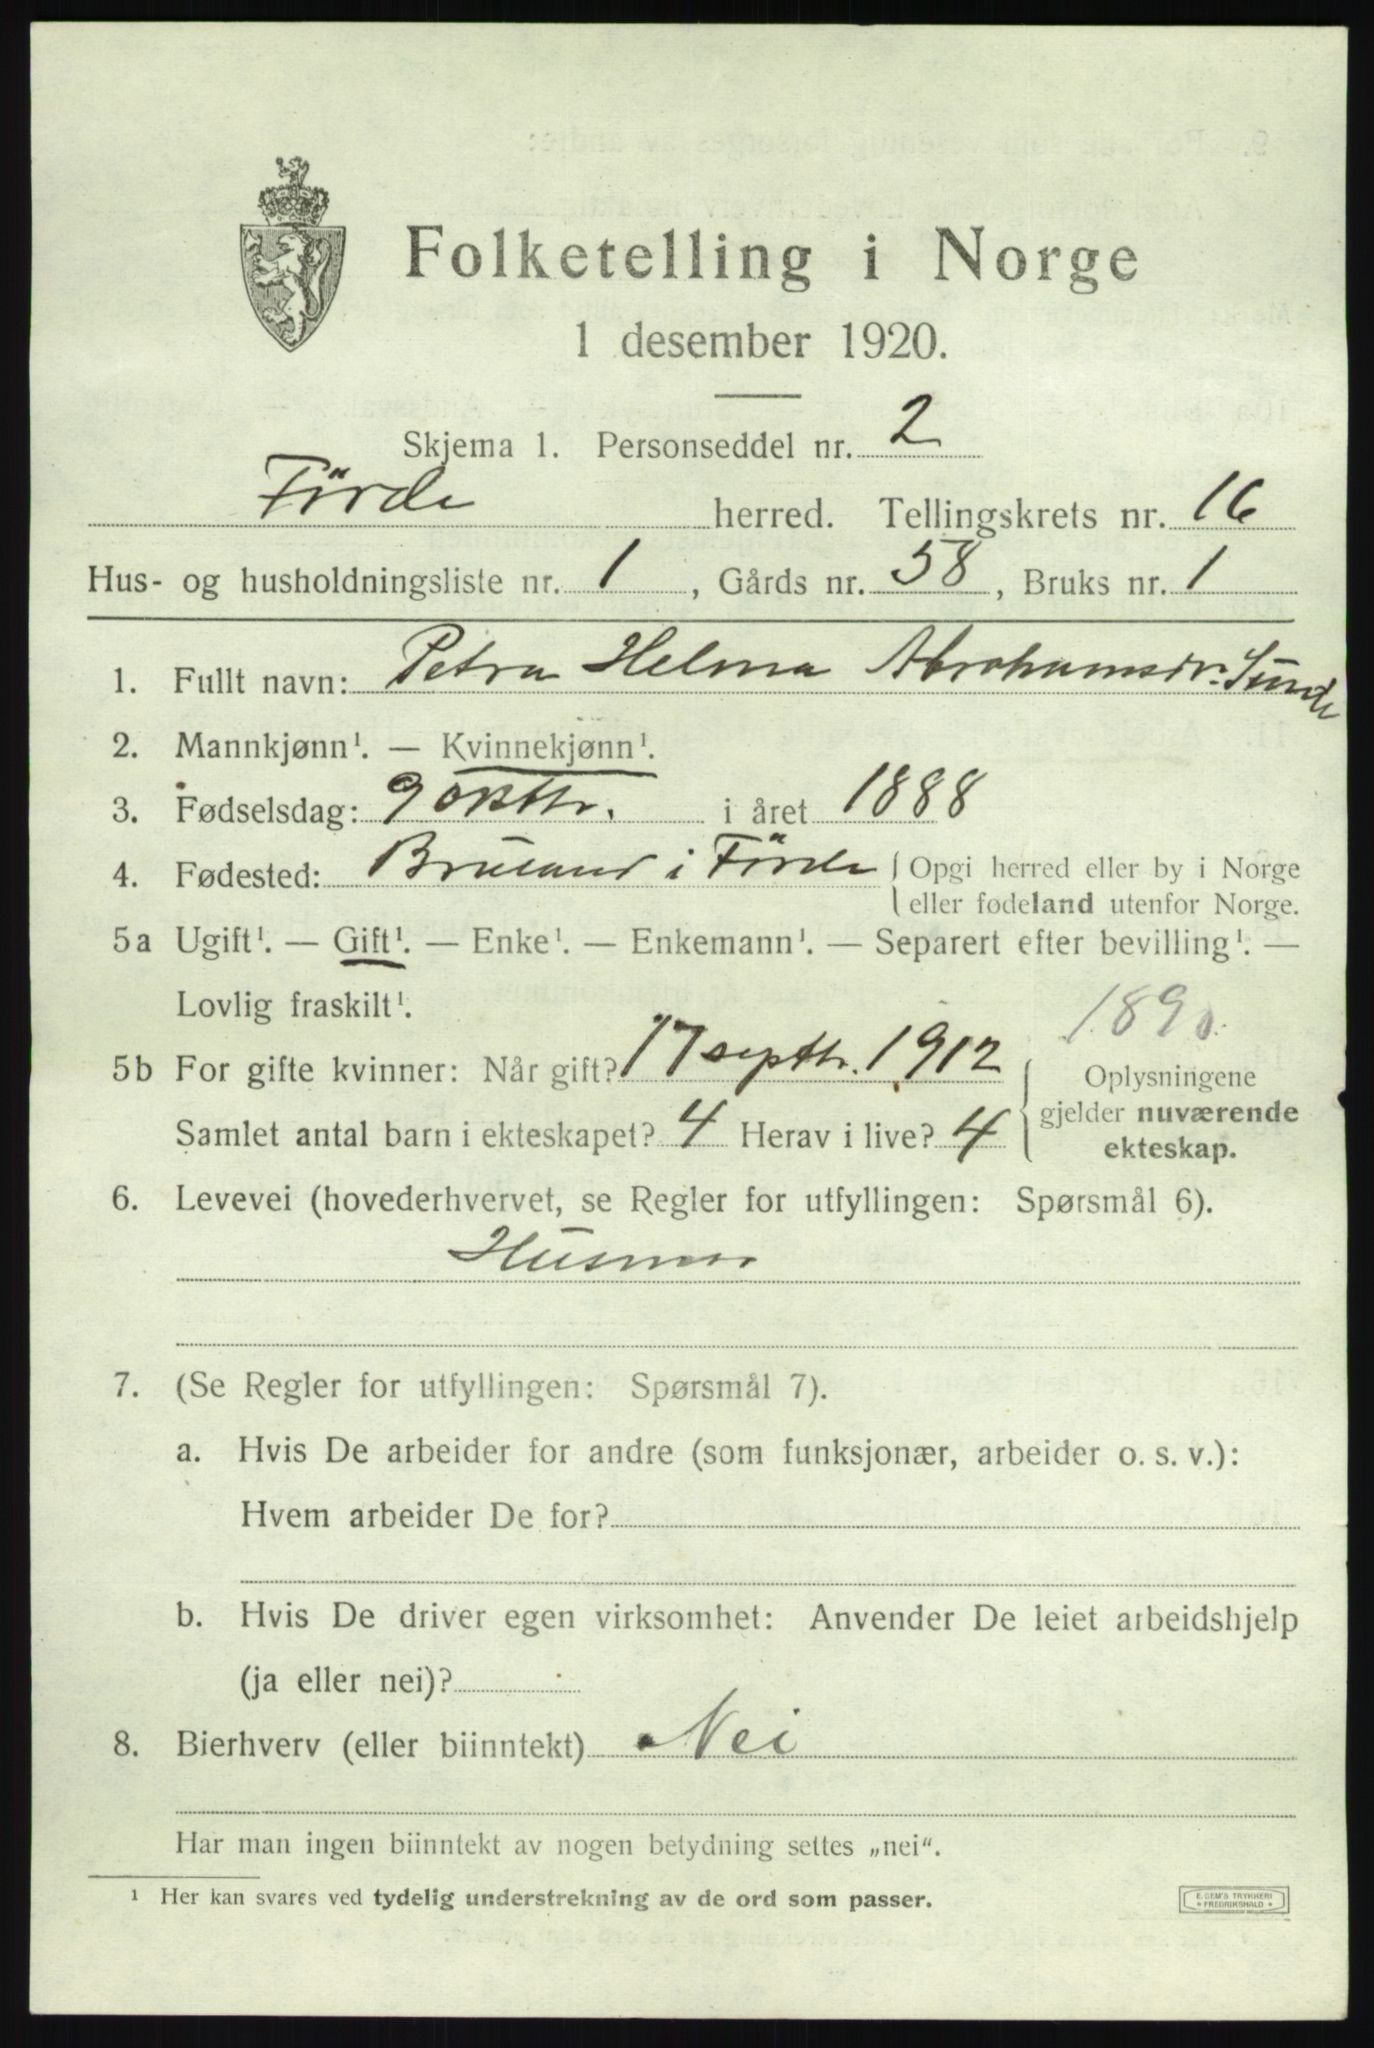 Folketelling i Norge
1 desember 1920.
Skjema 1. Personseddel nr. 2
Førde herred. Tellingskrets nr. 16
Hus- og husholdningsliste nr. 1, Gårds nr. 58, Bruks nr. 1
1. Fullt navn: Petra Helma Abrahamsdr. Sunde
2. Mannkjønn¹. — Kvinnekjønn¹.
3. Fødselsdag: 9 oktbr. i året 1888
4. Fødested: Bruland i Førde { Opgi herred eller by i Norge
eller fødeland utenfor Norge.
5a Ugift¹. — Gift¹. — Enke¹. — Enkemann¹. — Separert efter bevilling¹. —
Lovlig fraskilt¹.
5b For gifte kvinner: Når gift? 17 septbr. 1912
Samlet antal barn i ekteskapet? 4 Herav i live? 4
Oplysningene
gjelder nuværende
ekteskap.
6. Levevei (hovederhvervet, se Regler for utfyllingen: Spørsmål 6).
Husmor
7. (Se Regler for utfyllingen: Spørsmål 7).
a. Hvis De arbeider for andre (som funksjonær, arbeider o. s. v.):
Hvem arbeider De for?
b. Hvis De driver egen virksomhet: Anvender De leiet arbeidshjelp
(ja eller nei)?
8. Bierhverv (eller biinntekt) Nei
Har man ingen biinntekt av nogen betydning settes „nei“.
¹ Her kan svares ved tydelig understrekning av de ord som passer.
E. SEM'S TRYKKERI
* FREDRIKSHALD *